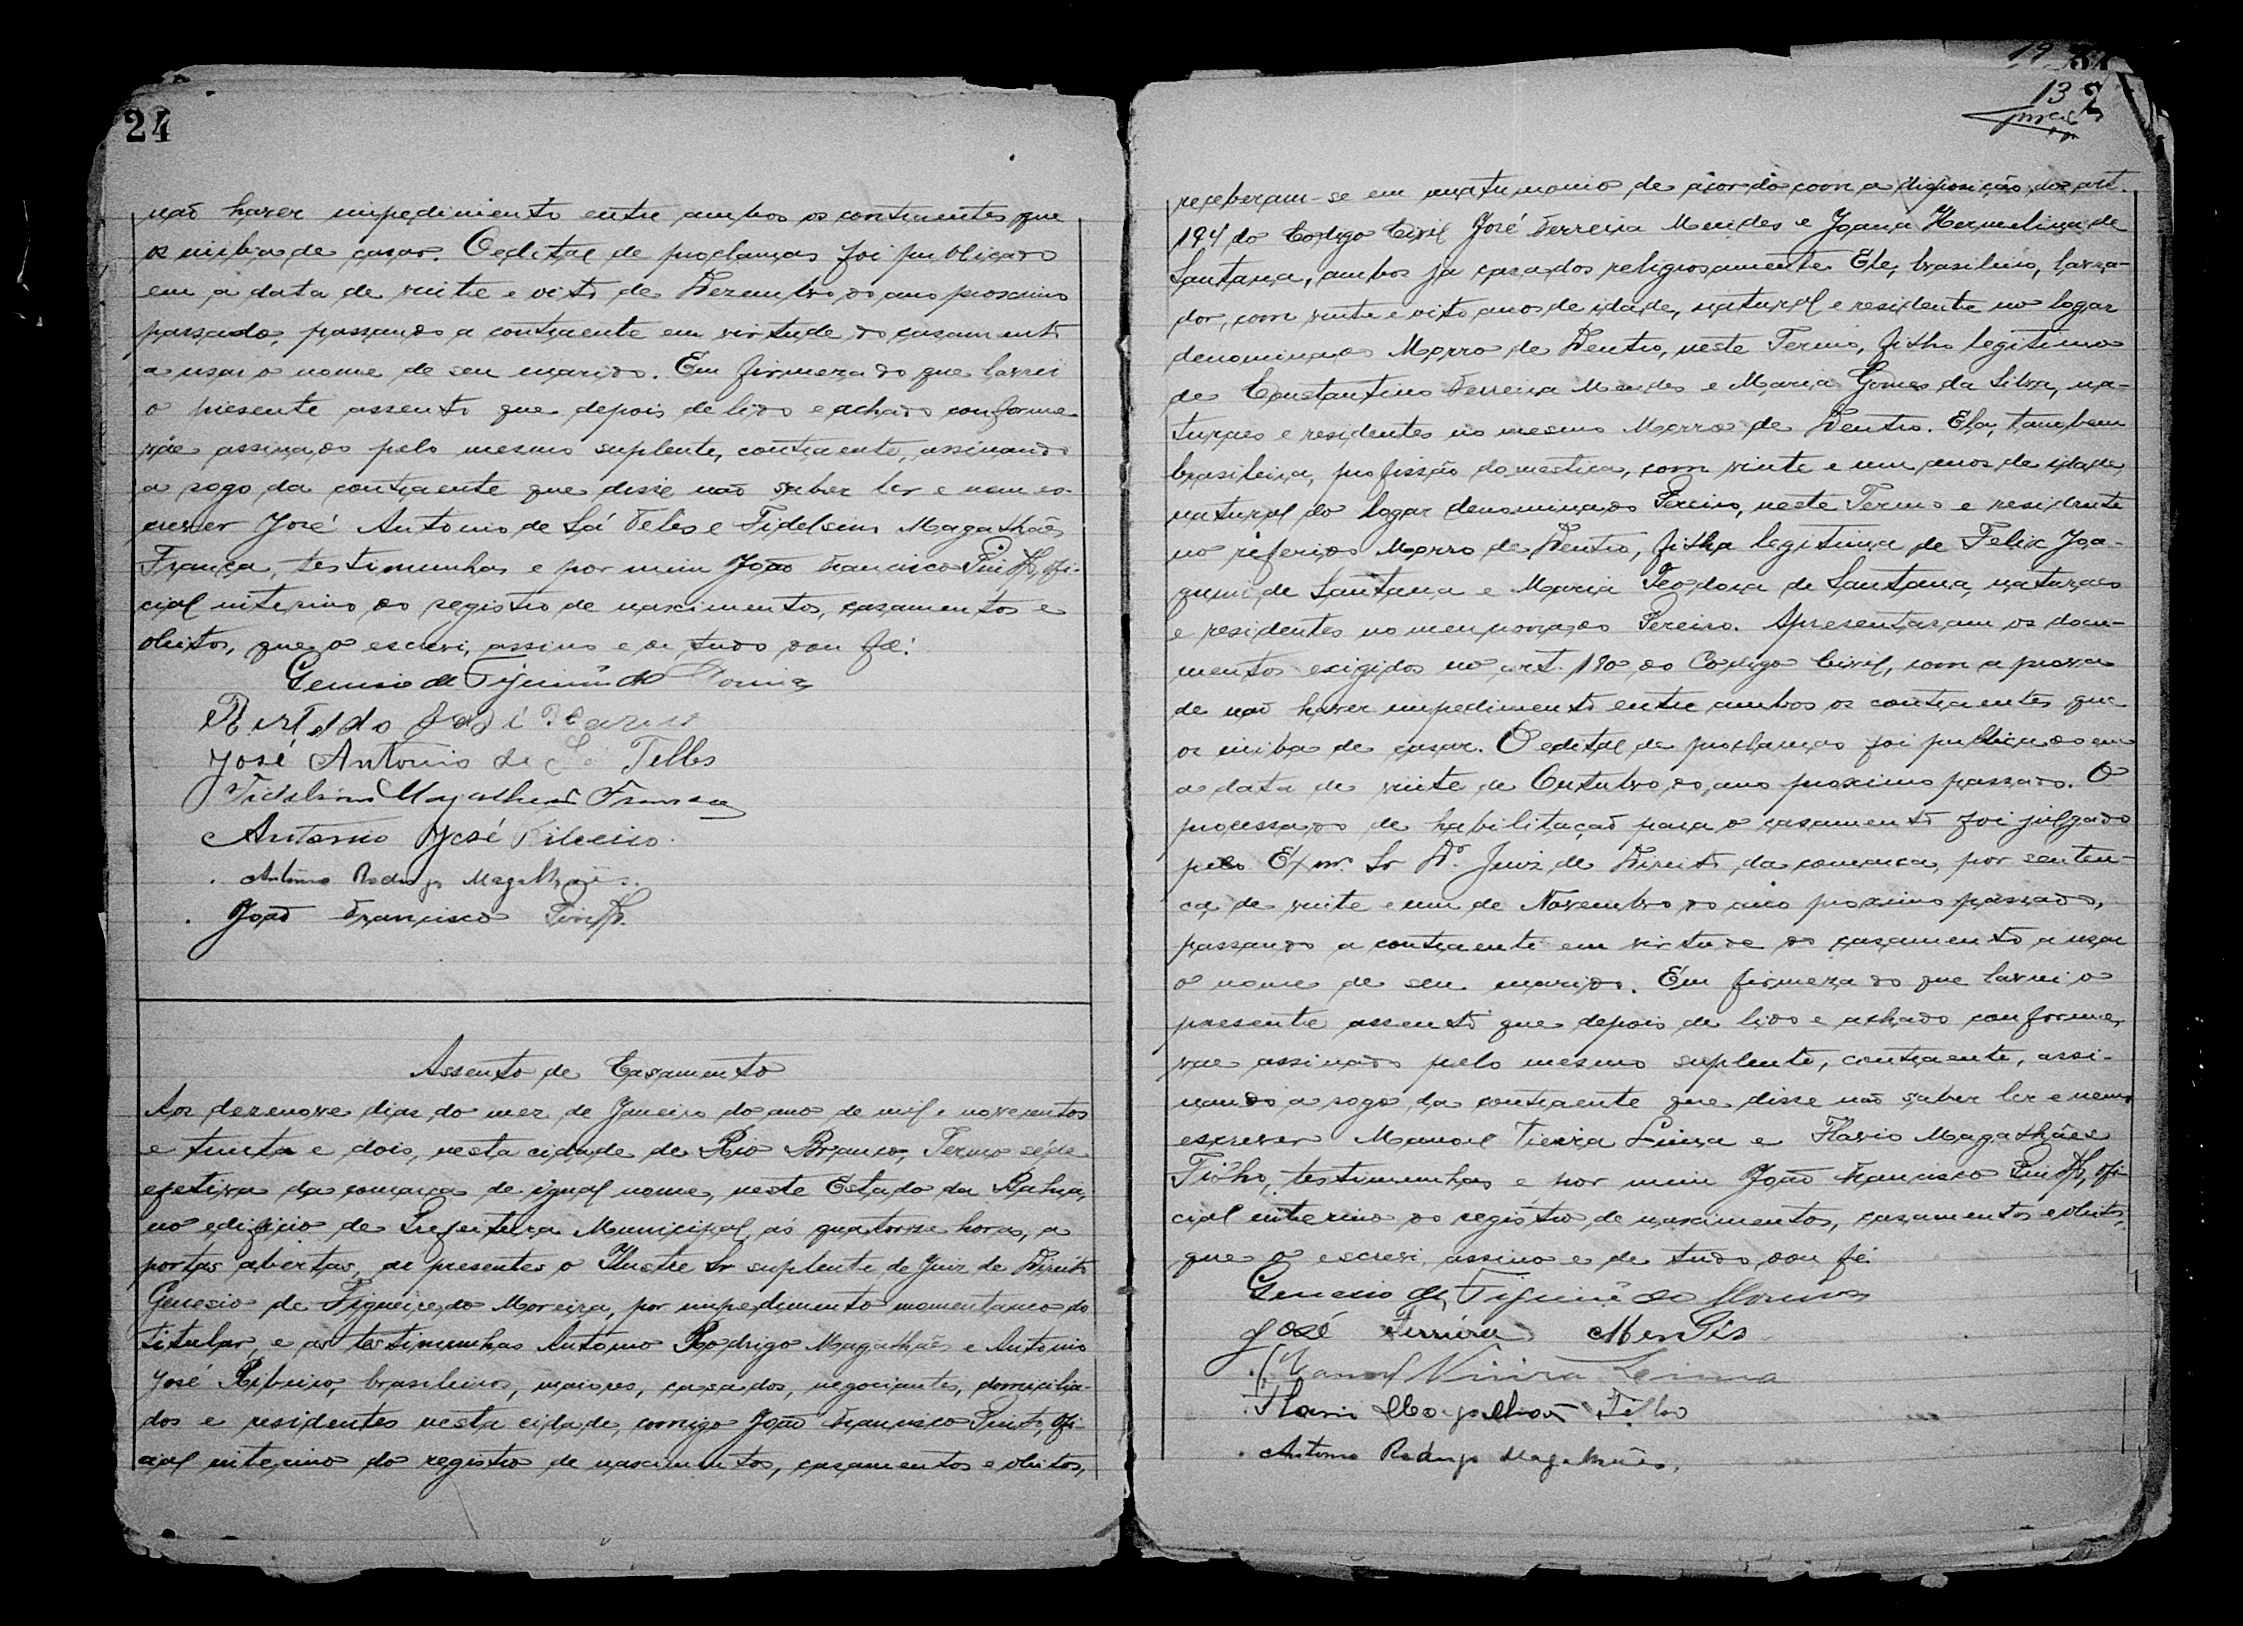 24
não haver impedimento entre ambos os contraentes que
os iniba de casar. O edital de proclamas foi publicado
em a data de vinte e oito de Dezembro do ano proximo
passado, passando a contraente em virtude do casamento
a usar o nome de seu marido. Em firmeza do que lavrei
o presente assento que depois de lido e achado conforme
vae assinado pelo mesmo suplente, contraente, assinando
a rogo da contraente que disse não saber ler e nem es-
crever José Antonio de Sá Teles e Fidelsino Magalhães
França, testimunhas e por mim João Francisco Pinto, ofi-
cial interino do registro de nascimentos, casamentos e
obitos, que o escrevi, assino e de tudo dou fé.
Genesio de Figueirêdo Moreira
José
José Antonio de Sá Telles
Fidelsino Magalhães Franca
Antonio José Ribeiro.
Antonio Rodrigo Magalhães.
João Francisco Pinto.
Assento de Casamento
Aos dezenove dias do mez de Janeiro do ano de mil e novecentos
e trinta e dois, nesta cidade de Rio Branco, Termo séde
efetiva da comarca de igual nome, neste Estado da Bahia,
no edificio de Prefeitura Municipal, ás quatorze hora, a
portas abertas, ai presentes o Ilustre Sr suplente de Juiz de Direito
Genesio de Figueiredo Moreira, por impedimento momentaneo do
titular, e as testimunhas Antonio Rodrigo Magalhães e Antonio
José Ribeiro, brasileiros, maiores, casados, negociantes, domicilia-
dos e residentes nesta cidade, comigo João Francisco Pinto, ofi-
cial interino do registro de nascimentos, casamentos e obitos,
19
13 2
receberam-se em matrimonio de acordo com a disposição do art.
194 do Codigo Civil José Ferreira Mendes e Joana Hermelina de
Santana, ambos já casados religiosamente. Ele, brasileiro, lavra-
dor, com vinte e oito anos de idade, natural e residente no logar
denominado Morro de Dentro, neste Termo, filho legitimo
de Constantino Ferreira Mendes e Maria Gomes da Silva, na-
turaes e residentes no mesmo Morro de Dentro. Ela, tambem
brasileira, profissão domestica, com vinte e um anos de idade
natural do logar denominado Pereiro, neste Termo e residente
no referido Morro de Dentro, filha legitima de Felix Joa-
quim de Santana e Maria Teodora de Santana, naturaes
e residentes no mencionado Pereiro. Apresentaram os docu-
mentos exigidos no art. 180 do Codigo Civil, com a prova
de não haver impedimento entre ambos os contraentes que
os iniba de casar. O edital de proclamas foi publicado em
a data de vinte de Outubro do ano proximo passado. O
processado de habilitação para o casamento foi julgado
pelo Exmº. Sr Dr. Juiz de Direito da comarca, por senten-
ça de vinte e um de Novembro do ano proximo passado,
passando a contraente em virtude do casamento a usar
o nome de seu marido. Em firmeza do que lavrei o
presente assento que depois de lido e achado conforme,
vae assinado pelo mesmo suplente, contraente, assi-
nando a rogo da contraente que disse não saber ler e nem
escrever Manoel Vieira Lima e Flavio Magalhães
Filho, testimunhas e por mim João Francisco Pinto, ofi-
cial interino do registro de nascimentos, casamentos e obitos,
que o escrevi, assino e de tudo dou fé.
Genesio de Figueirêdo Moreira
José Ferreira Mendes
Manoel Vieira Lima
Flavio Magalhães Filho
Antonio Rodrigo Magalhães.